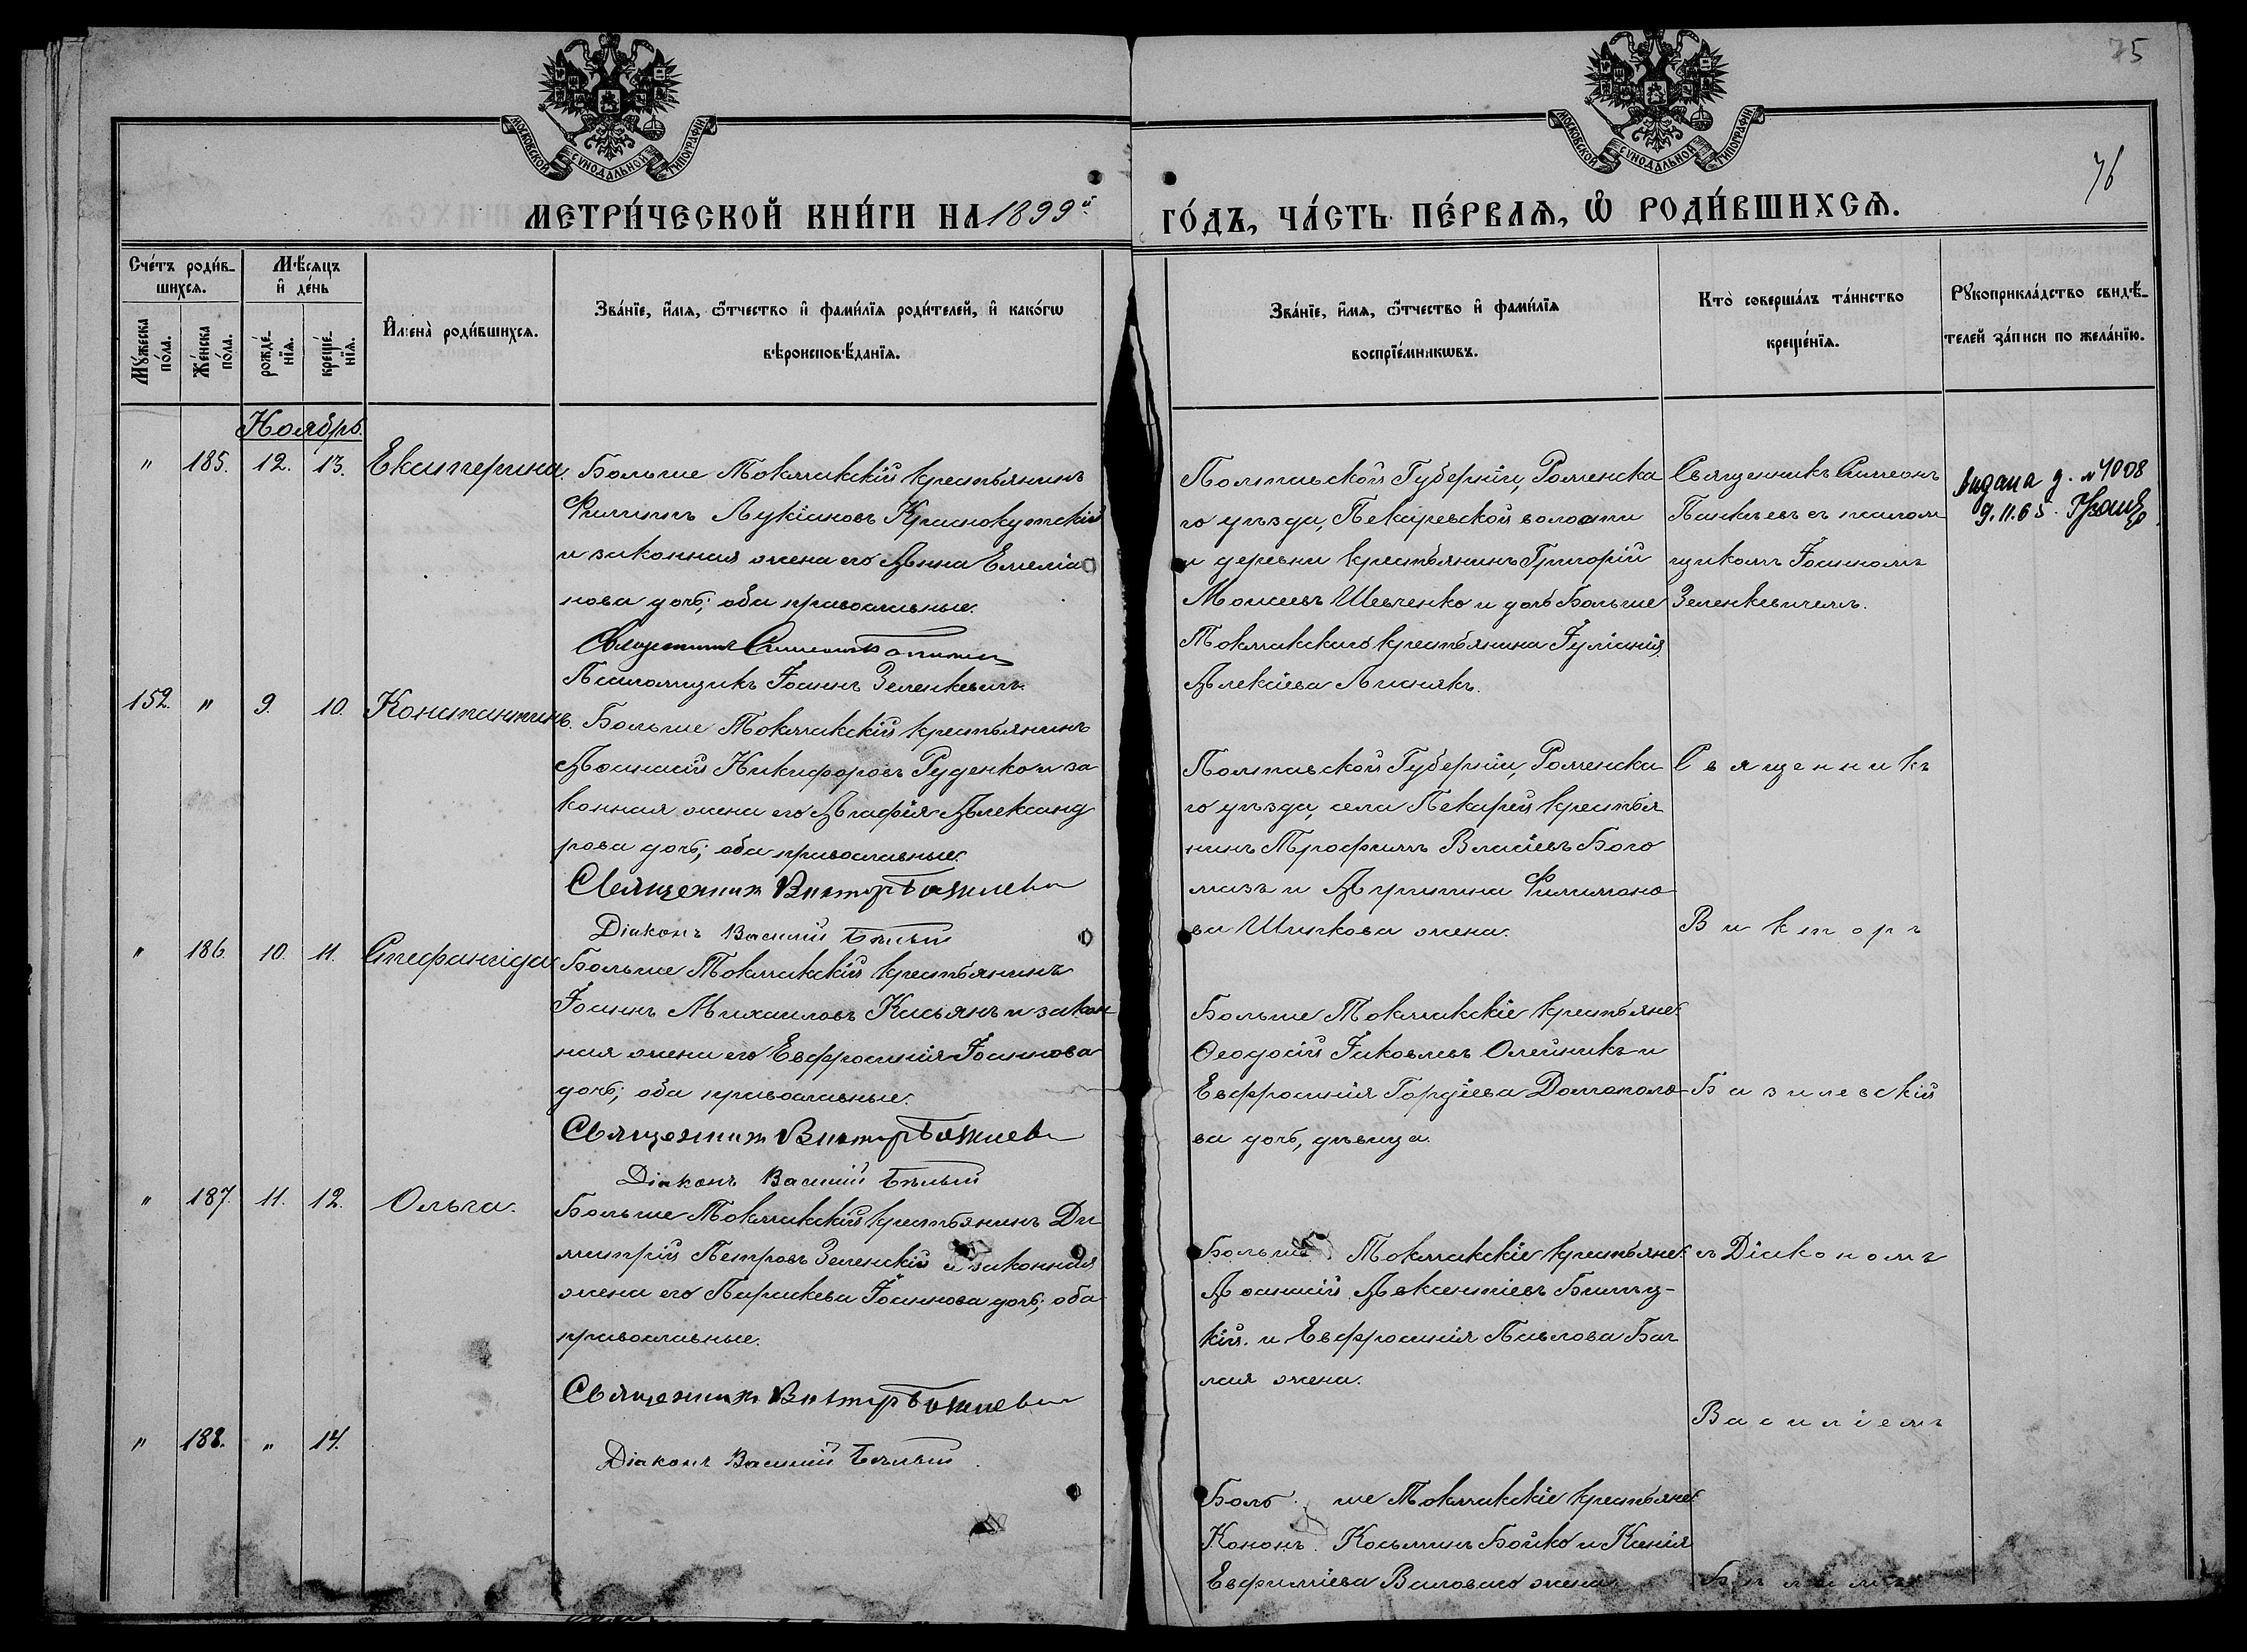 75
76
МОСКОВСКОЙ СѴНОДАЛЬНОЙ ТИПОГРАФІИ
МОСКОВСКОЙ СѴНОДАЛЬНОЙ ТИПОГРАФІИ
МЕТРИ́ЧЕСКОЙ КНИ́ГИ НА 1899й
ГО́ДЪ, ЧА́СТЬ ПЕ́РВАѦ, Ѡ РОДИ́ВШИХСѦ.
Сче́тъ роди́в-
шихсѧ.
Мѣ́сѧцъ
и де́нь
Мꙋ́жеска по́ла.
Же́нска по́ла.
рожде́-
нїѧ.
креще́-
нїѧ.
Имена̀ роди́вшихсѧ.
Зва́нїе, и́мѧ, ѻ́тчество и фами́лїѧ роди́телей, и како́гѡ
вѣроисповѣ́данїѧ.
Зва́нїе, и́мѧ, ѻ́тчество и фами́лїѧ
воспрїе́мникѡвъ.
Кто̀ соверша́лъ та́инство
креще́нїѧ.
Рꙋкоприкла́дство свидѣ́-
телей за́писи по жела́нїю.
Ноябрь.
" 185. 12. 13. Екатерина.
Больше Токмакскій крестьянинъ
Филиппъ Лукіановъ Краснокутскій
и законная жена его Анна Емеліа
нова дочь; оба православные.
Священникъ Симеонъ
Псаломщикъ Іоаннъ Зеленкевичъ.
Полтавской Губерніи, Роменска
го уѣзда, Пекаревской волости
и деревни крестьянинъ Григорій
Моисеевъ Шевченко и дочь Больше
Токмакскаго крестьянина Іуліанія
Алексіева Лисняка.
Священникъ Симеонъ
съ псалом
щикомъ Іоанномъ
Зеленкевичемъ.
видана д. № 4008
9.11.65.
152. " 9. 10. Константинъ.
Больше Токмакскій крестьянинъ
Аѳанасій Никифоровъ Руденко и за
конная жена его Агафія Александ
рова дочь; оба православные.
Священникъ Викторъ
Діаконъ Василій Бѣлый
Полтавской Губерніи, Роменска
го уѣзда, села Пекарей крестья
нинъ Трофимъ Власіевъ Бого
мазъ и Агрипина Филимоно
ва Шипкова жена.
Священникъ
Викторъ
" 186. 10. 11. Стефанида
Больше Токмакскій крестьянинъ
Іоаннъ Михаиловъ Касьянъ и закон
ная жена его Евфросинія Іоаннова
дочь; оба православные.
Священникъ Викторъ
Діаконъ Василій Бѣлый
Больше Токмакскіе крестьяне
Ѳеодосій Іаковлевъ Олейникъ и
Евфросинія Гордіева Домополо
ва дочь, дѣвица.
Базилевскій
" 187. 11. 12. Ольга.
Больше Токмакскій крестьянинъ Ди
митрій Петровъ Зеленскій и законная
жена его Параскева Іоаннова дочь; оба
православные.
Священникъ Викторъ
Діаконъ Василій Бѣлый
Больше Токмакскіе крестьяне
Аѳанасій Авксентіевъ Билец-
кій и Евфросинія Павлова Баг
лая жена.
съ Діакономъ
Василіемъ
" 188. " 14.
Боль ше Токмакскіе крестьяне
Кононъ Косьминъ Бойко и Ксенія
Евфиміева Виловаго жена
Бѣлымъ